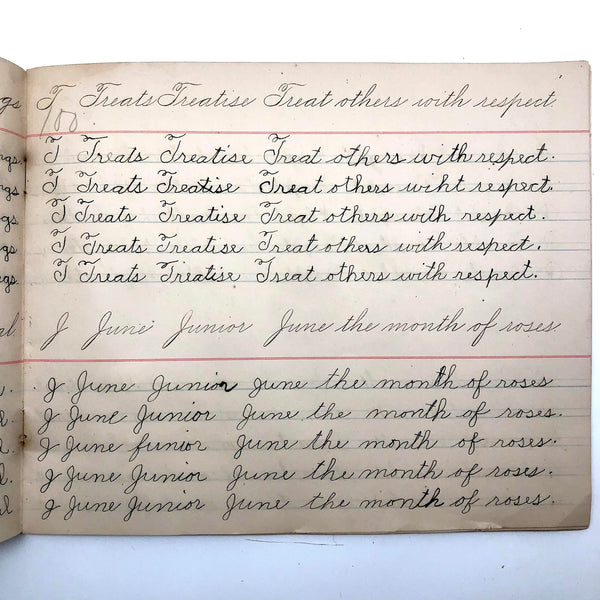 gs T Treats Treatise Treat others with respect.
100
ngs. T Treats Treatise Treat others with respect.
ngs T Treats Treatise Treat others wiht respect.
gs T Treats Treatise Treat others with respect.
gs T Treats Treatise Treat others with respect.
gs T Treats Treatise Treat others with respect.
al J June Junior June the month of roses
J June Junior June the month of roses
l. J June Junior June the month of roses.
l. J June Junior June the month of roses.
l. J June Junior June the month of roses.
al J June Junior June the month of roses.